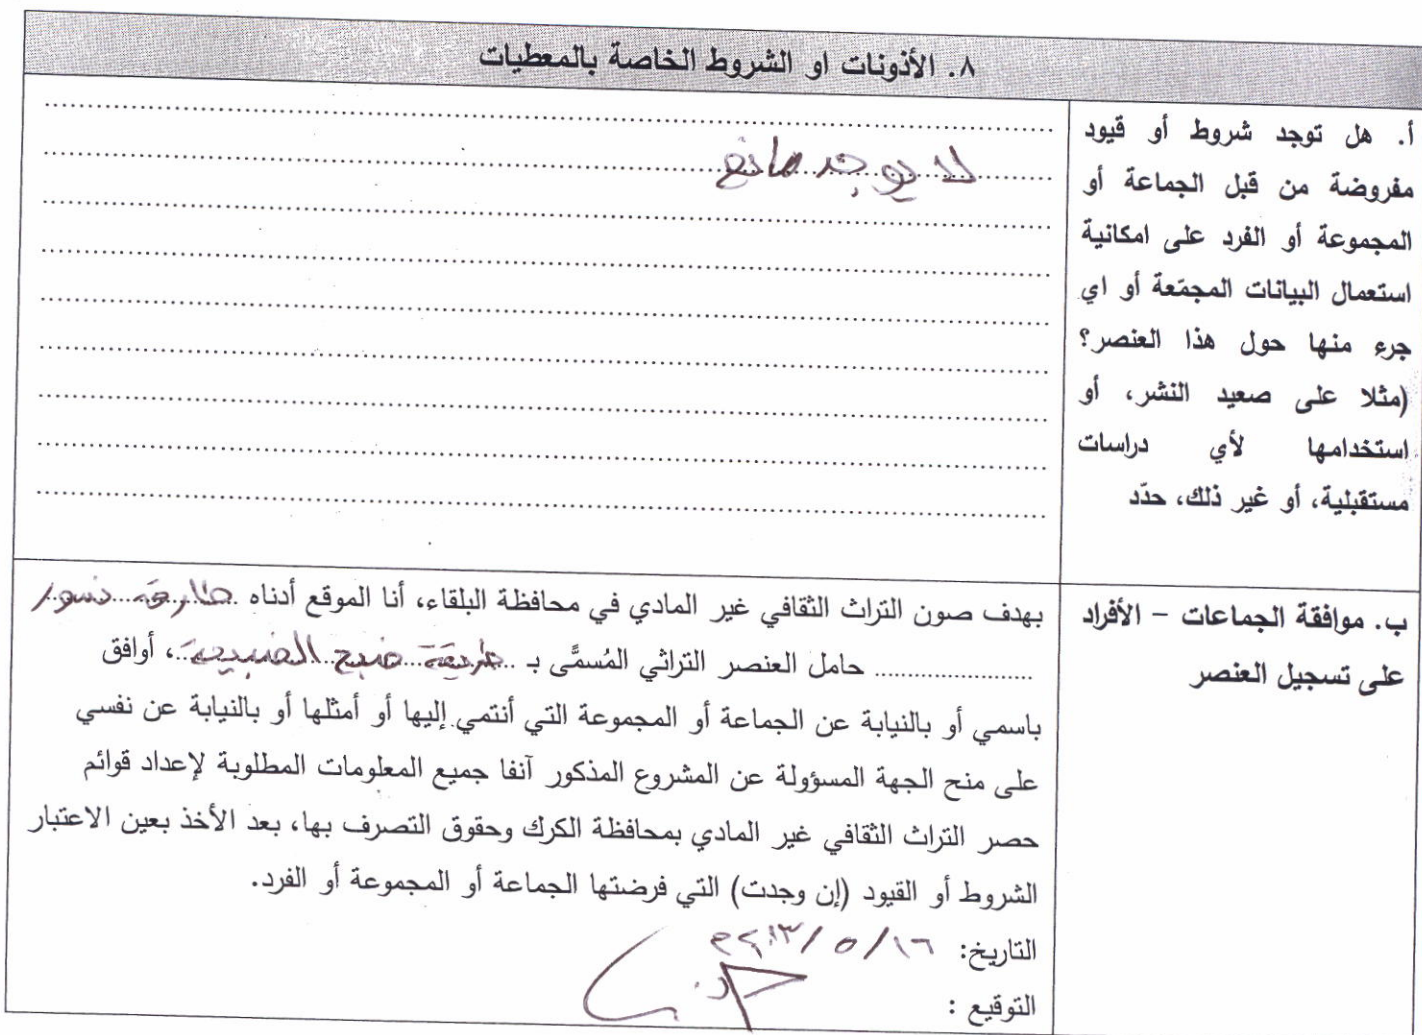 ٨. الأذونات او الشروط الخاصة بالمعطيات
أ. هل توجد شروط أو قيود
مفروضة من قبل الجماعة أو
المجموعة أو الفرد على امكانية
استعمال البيانات المجمّعة أو اي
جزء منها حول هذا العنصر؟
(مثلا على صعيد النشر، أو
استخدامها لأي دراسات
مستقبلية، أو غير ذلك، حدّد
لا يوجد مانع
ب. موافقة الجماعات – الأفراد
على تسجيل العنصر
بهدف صون التراث الثقافي غير المادي في محافظة البلقاء، أنا الموقع أدناه
حامل العنصر التراثي المُسمَّى بـ طريقة، أوافق
باسمي أو بالنيابة عن الجماعة أو المجموعة التي أنتمي إليها أو أمثلها أو بالنيابة عن نفسي
على منح الجهة المسؤولة عن المشروع المذكور آنفا جميع المعلومات المطلوبة لإعداد قوائم
حصر التراث الثقافي غير المادي بمحافظة الكرك وحقوق التصرف بها، بعد الأخذ بعين الاعتبار
الشروط أو القيود (إن وجدت) التي فرضتها الجماعة أو المجموعة أو الفرد.
التاريخ: ١٦/٥/٢٠١٣م
التوقيع :